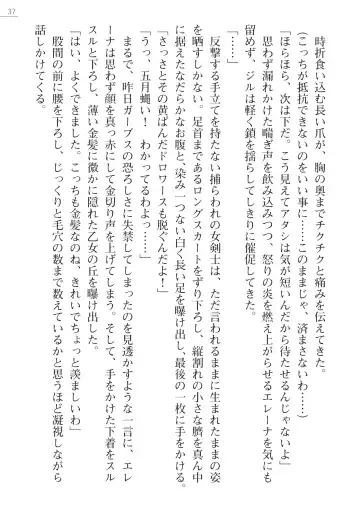 37
時折食い込む長い爪が、胸の奥までチクチクと痛みを伝えてきた。
(こっちが抵抗できないのをいい事に……このままじゃ、済まさないわ……)
「ほらほら、次は下だ。こう見えてアタシは気が短いんだから待たせるんじゃないよ」
思わず漏れかけた喘ぎ声を飲み込みつつ、怒りの炎を燃え上がらせるエレーナを気にも
留めず、ジルは軽く鎖を揺らしてしきりに催促してきた。
「……」
反撃する手立てを持たない捕らわれの女剣士は、ただ言われるままに生まれたままの姿
を晒すしかない。足首まであるロングスカートをずり下ろし、縦割れの小さな臍を真ん中
に据えたなだらかなお腹と、染み一つない白く長い足を曝け出し、最後の一枚に手をかける。
「さっさとその黄ばんだドロワースも脱ぐんだよ!」
「うっ、五月蝿い! わかってるわよっ……」
まるで、昨日ガープスの恐ろしさに失禁してしまったのを見透かすような一言に、エレ
ーナは思わず顔を真っ赤にして金切り声を上げてしまう。そして、手をかけた下着をスル
スルと下ろし、薄い金髪に微かに隠れた乙女の丘を曝け出した。
「はい、よくできました。こっちも金髪なのね、きれいでちょっと羨ましいわ」
股間の前に腰を下ろし、じっくりと毛穴の数まで数えているかと思うほど凝視しながら
話しかけてくる。